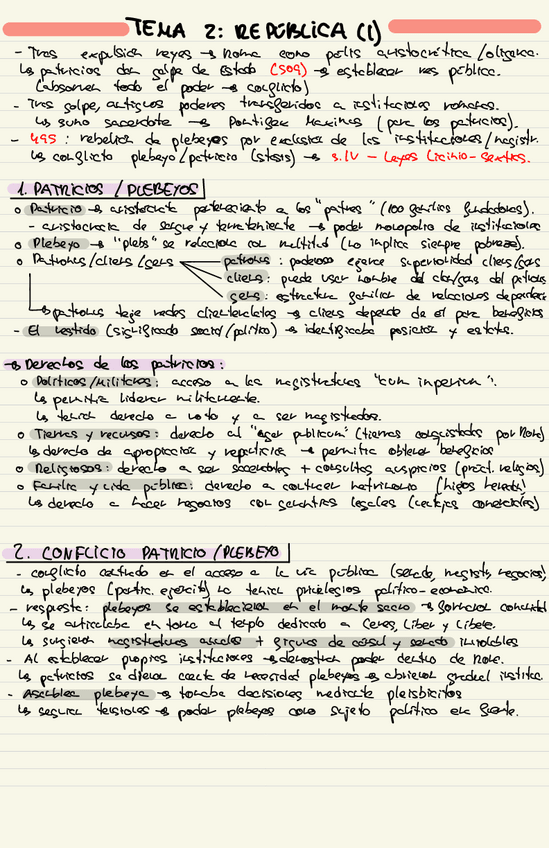 TEMA 2: REPÚBLICA (I)
- Tras expulsión reyes → Roma como polis aristocrática/oligarca.
↳ patricios dan golpe de Estado (509) → establecen res pública.
(absorven todo el poder → conflicto)
- Tras golpe, antiguos poderes transferidos a instituciones romanas.
↳ sumo sacerdote → Pontifex Maximus (para los patricios).
- 495: rebelión de plebeyos por exclusión de las instituciones/magistr.
↳ conflicto plebeyo/patricio (stasis) → s.IV - Leyes Licinio-Sextias.
1. PATRICIOS / PLEBEYOS
o Patricio → aristócrata perteneciente a los "patres" (100 familias fundadoras).
- aristocracia de sangre y terrateniente → poder monopolio de instituciones
o Plebeyo → "plebs" se relaciona con multitud (no implica siempre pobreza).
o Patronus/cliens/gens
patronus: poderoso ejerce superioridad cliens/gens
cliens: puede usar nombre del clan/gens del patronus
gens: estructura familiar de relaciones dependen
↳ patronus teje redes clientelares → cliens depende de él para beneficios
- El vestido (significado social/político) → identificaba posición y estatus.
→ Derechos de los patricios:
o Políticos/militares: acceso a las magistraturas "cum imperium".
↳ permitía liderar militarmente.
↳ tenían derecho a voto y a ser magistrados.
o Tierras y recursos: derecho al "ager publicum" (tierras conquistadas por Roma)
↳ derecho de apropiación y repartición → permitía obtener beneficios
o Religiosos: derecho a ser sacerdotes + consultas auspicios (práct. religios)
o Familia y vida pública: derecho a contraer matrimonio (hijos heredan)
↳ derecho a hacer negocios con garantías legales (ventajas comerciales)
2. CONFLICTO PATRICIO / PLEBEYO
- conflicto centrado en el acceso a la vía pública (senado, magistr, negocios)
↳ plebeyos (partic. ejército) no tenían privilegios político-económic.
- respuesta: plebeyos se establecieron en el monte sacro →
↳ se articulaba en torno al templo dedicado a Ceres, Liber y Libera.
↳ surgieron magistraturas anuales + figuras de cónsul y senado inviolables
- Al establecer propias instituciones → demostran poder dentro de Roma.
↳ patricios se dieron cuenta de necesidad plebeyos → abrieron gradual instituc.
- Asamblea plebeya → tomaba decisiones mediante plesbicitos
↳ seguían tensiones → poder plebeyos como sujeto político en frente.